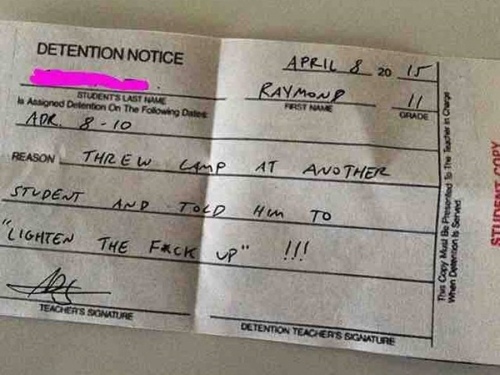 DETENTION NOTICE
APRIL 8 20 15
STUDENT'S LAST NAME
RAYMOND 11
FIRST NAME GRADE
Is Assigned Detention On The Following Dates
APR. 8-10
REASON THREW LAMP AT ANOTHER
STUDENT AND TOLD HIM TO
"LIGHTEN THE F*CK UP" !!!
TEACHER'S SIGNATURE
DETENTION TEACHER'S SIGNATURE
This Copy Must Be Presented To The Teacher in Charge
When Detention Is Served
STUDENT COPY